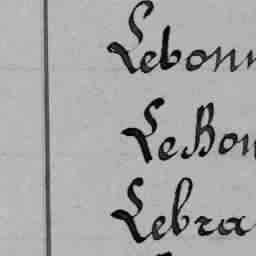 Lebonn
Le Bon
Lebra